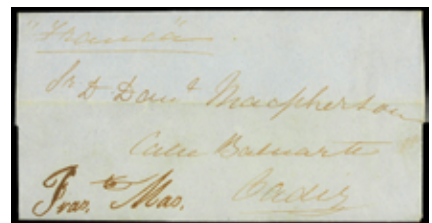 "Franca".
Sr. D. Danl. Macpherson
Calle Baluarte
Cadiz
Fran. to Mas.